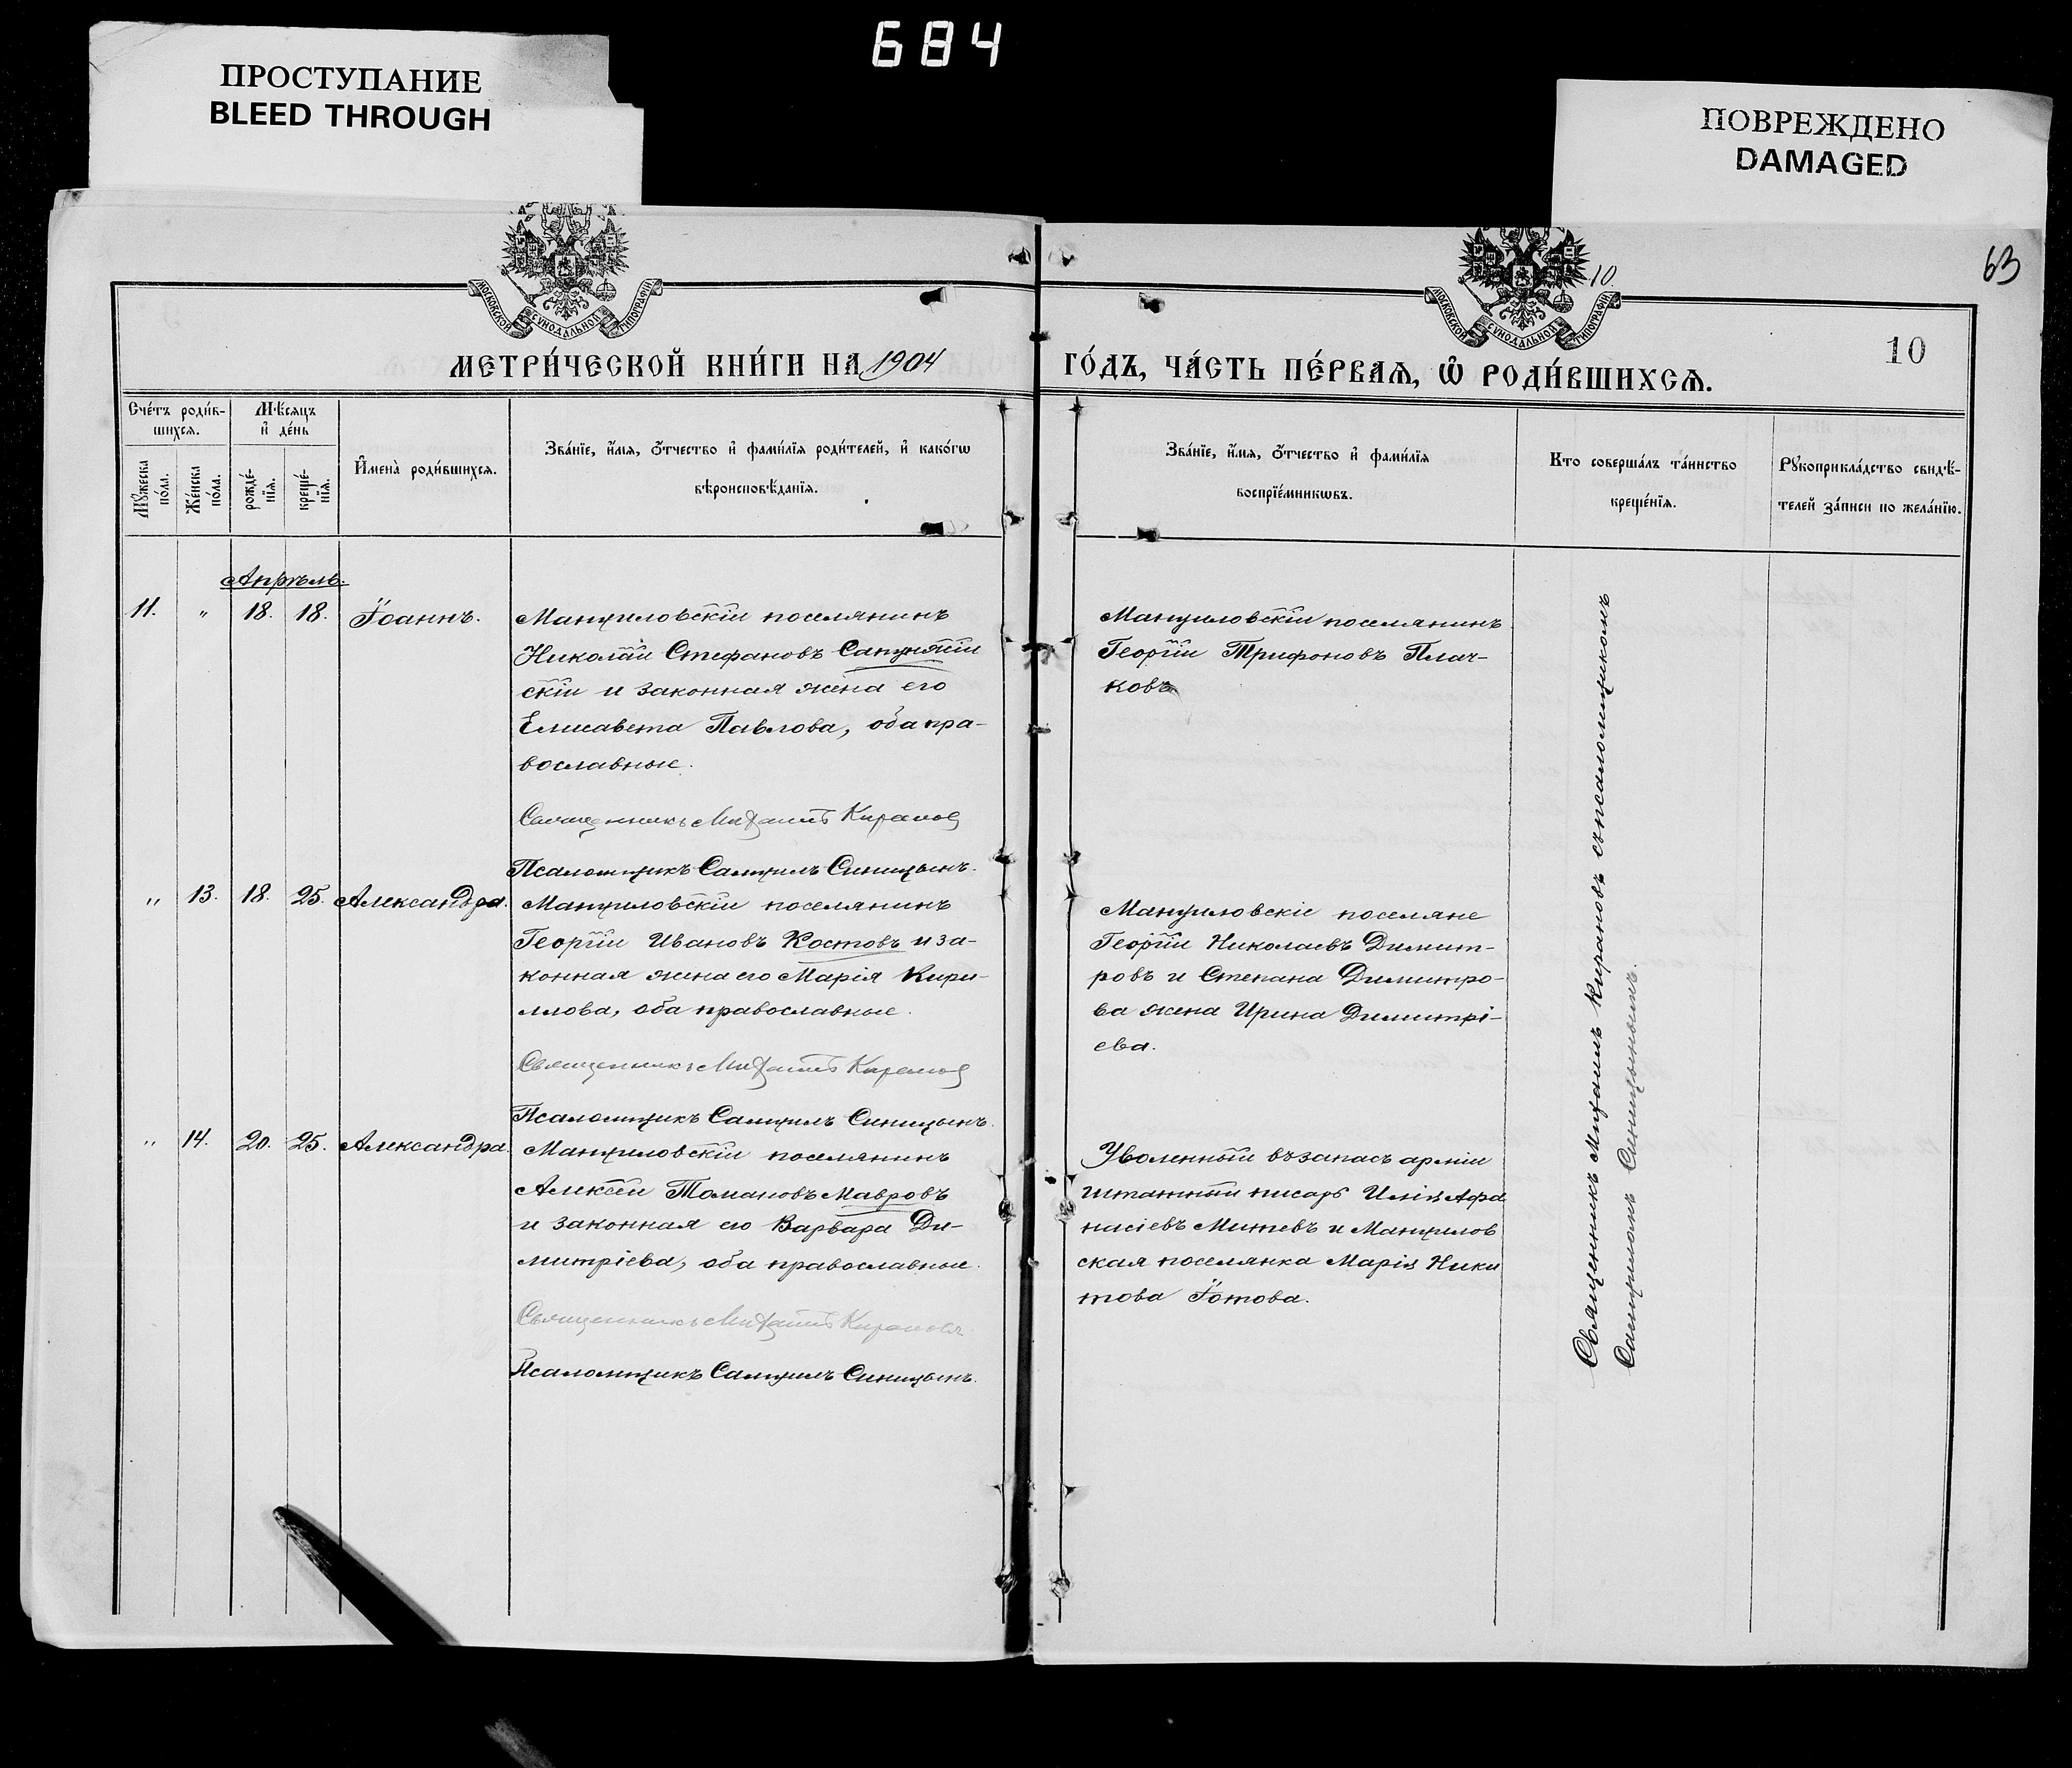 684
ПРОСТУПАНИЕ
BLEED THROUGH
ПОВРЕЖДЕНО
DAMAGED
63
10.
МОСКОВСКОЙ СѴНОДАЛЬНОЙ ТИПОГРАФІИ
МОСКОВСКОЙ СѴНОДАЛЬНОЙ ТИПОГРАФІИ
10
МЕТРИ́ЧЕСКОЙ КНИ́ГИ НА 1904 ГО́ДЪ, ЧА́СТЬ ПЕ́РВАѦ, Ѡ҆ РОДИ́ВШИХСѦ.
Сче́тъ роди́в-
шихсѧ.
Мѣ́сѧцъ
и҆ де́нь
Мꙋ́жеска
по́ла.
Же́нска
по́ла.
рожде́-
нїѧ.
креще́-
нїѧ.
И҆мена̀ роди́вшихсѧ.
Зва́нїе, и҆́мѧ, ѻ҆́тчество и҆ фами́лїѧ роди́телей, и҆ како́гѡ
вѣроисповѣ́данїѧ.
Зва́нїе, и҆́мѧ, ѻ҆́тчество и҆ фами́лїѧ
воспрїе́мникѡвъ.
Кто соверша́лъ та́инство
креще́нїѧ.
Рꙋкоприкла́дство свидѣ́-
телей за́писи по жела́нїю.
Апрѣль.
11. „ 18. 18. Іоаннъ.
Мануиловскій поселянинъ
Николай Стефановъ
скій и законная жена его
Елисавета Павлова, оба пра-
вославные.
Священникъ Михаилъ Киранов
Псаломщикъ Самуилъ Синицынъ.
Мануиловскій поселянинъ
Георгій Трифоновъ Плач-
ковъ
„ 13. 18. 25. Александра.
Мануиловскій поселянинъ
Георгій Ивановъ Костовъ и за-
конная жена его Марія Кири-
ллова, оба православные.
Священникъ Михаилъ Киранов
Псаломщикъ Самуилъ Синицынъ.
Мануиловскіе поселяне
Георгій Николаевъ Димит-
ровъ и Степана Димитро-
ва жена Ирина Димитрі-
ева.
„ 14. 20. 25. Александра.
Мануиловскій поселянинъ
Алексѣй Томановъ Мавровъ
и законная его Варвара Ди-
митріева, оба православные.
Священникъ Михаилъ Кирановъ
Псаломщикъ Самуилъ Синицынъ.
Уволенный въ запасъ арміи
штатный писарь Илія Афа
насіевъ Митевъ и Мануилов
ская поселянка Марія Ники
това Іотова.
Священникъ Михаилъ Кирановъ съ псаломщикомъ
Самуиломъ Синицынымъ.